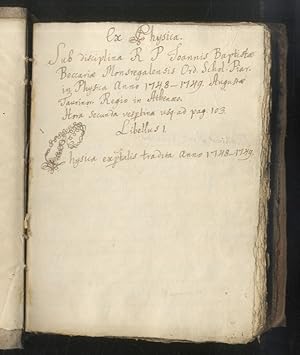 Ex Physica.
Sub disciplina R P Joannis Baptistæ
Beccariæ Monsregalensis Ord Schol Piar.
in Physica Anno 1748–1749. Augustæ
Taurinor Regio in Athenæo.
Hora Secunda vespertina usq ad pag 103
Libellus 1
Physica exptalis tradita Anno 1748–1749.